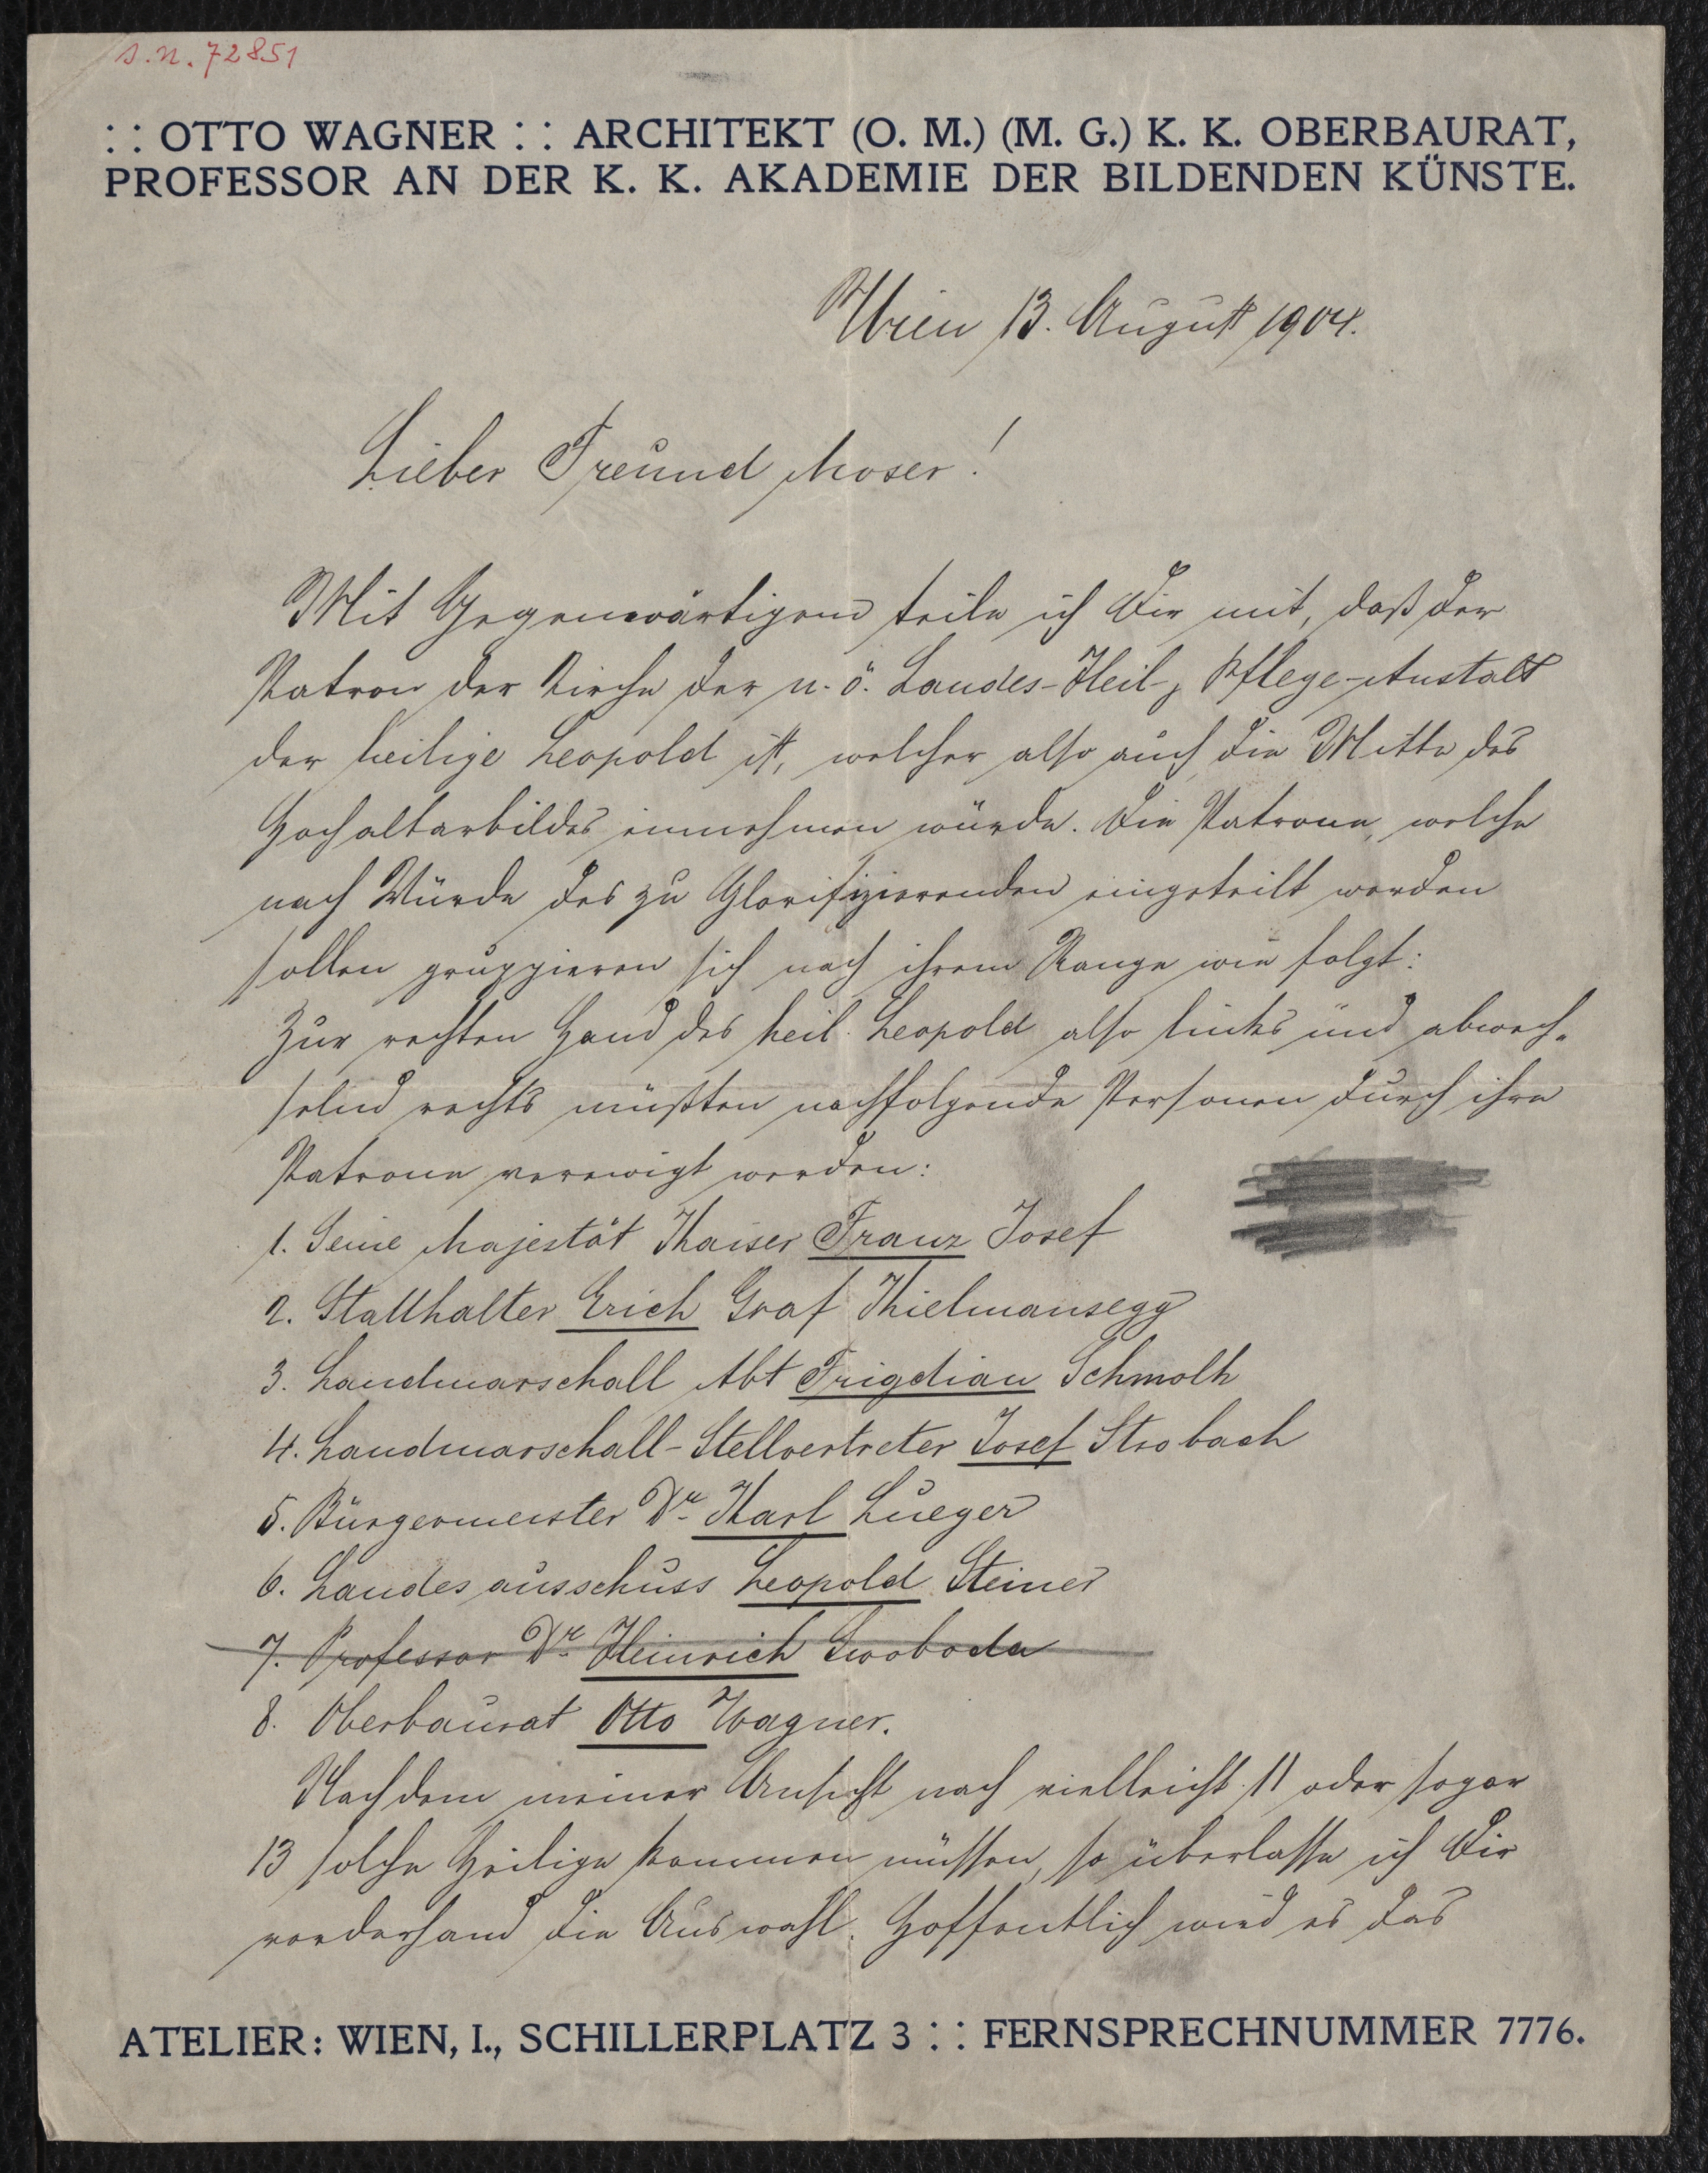 s.n. 72851
: : OTTO WAGNER : : ARCHITEKT (O. M.) (M. G.) K. K. OBERBAURAT,
PROFESSOR AN DER K. K. AKADEMIE DER BILDENDEN KÜNSTE.
Wien 13. August 1904.
Lieber Freund Moser!
Mit Gegenwärtigem teile ich Dir mit, daß der
Patron der Kirche der n. ö. Landes-Heil- Pflege-Anstalt
der heilige Leopold ist, welcher also auch die Mitte des
Hochaltarbildes einnehmen würde. Die Patrone, welche
nach Würde des zu Glorifizierenden eingeteilt werden
sollen gruppieren sich nach ihrem Range wie folgt:
Zur rechten Hand des heil. Leopold also links und abwech-
selnd rechts müßten nachfolgende Personen durch ihre
Patrone verewigt werden:
1. Seine Majestät Kaiser Franz Josef
2. Statthalter Erich Graf Kielmansegg
3. Landmarschall Abt Frigdian Schmolk
4. Landmarschall-Stellvertreter Josef Strobach
5. Bürgermeister Dr. Karl Lueger
6. Landesausschuss Leopold Steiner
7. Professor Dr. Heinrich Swoboda
8. Oberbaurat Otto Wagner.
Nachdem meiner Ansicht nach vielleicht 11 oder sogar
13 solche Heilige kommen müssen, so überlasse ich Dir
vorderhand die Auswahl. Hoffentlich wird es das
ATELIER: WIEN, I., SCHILLERPLATZ 3 : : FERNSPRECHNUMMER 7776.